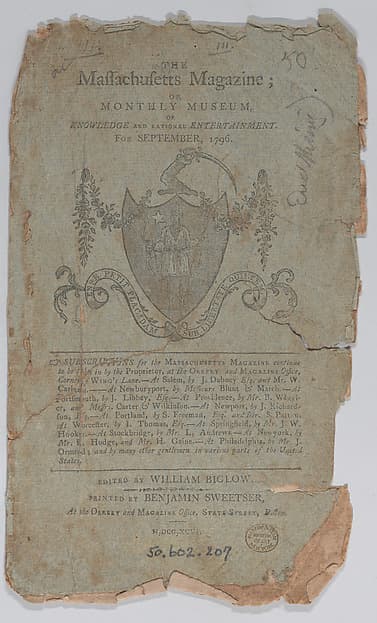 50
THE
Massachusetts Magazine;
OR
MONTHLY MUSEUM,
OF
KNOWLEDGE AND RATIONAL ENTERTAINMENT.
For SEPTEMBER, 1796.
ENSE PETIT PLACIDAM SUB LIBERTATE QUIETEM
SUBSCRIPTIONS for the Massachusetts Magazine continue
to be taken in by the Proprietor, at the Orrery and Magazine Office,
Corner Wing's Lane.—At Salem, by J. Dabney Esq. and Mr. W.
—At Newburyport, by Messieurs Blunt & March.—At
Portsmouth, by J. Libbey, Esq.—At Providence, by Mr. B.
and Messrs. Carter & Wilkinson.—At Newport, by J. Richard-
son, Esq.—At Portland, by S. Freeman, Esq. and
at Worcester, by I. Thomas, Esq.—At Springfield, by Mr. J. W.
Hooker.—At Stockbridge, by Mr. L. Andrews.—At Newyork, by
Mr. E. Hodge, and Mr. H. Gaine.—At Philadelphia, by Mr. J.
Ormrod; and by many other gentlemen in various parts of the United
States.
EDITED BY WILLIAM BIGLOW.
PRINTED BY BENJAMIN SWEETSER,
At the Orrery and Magazine Office, State Street, Boston.
M,DCC,XCVI.
50.602.207